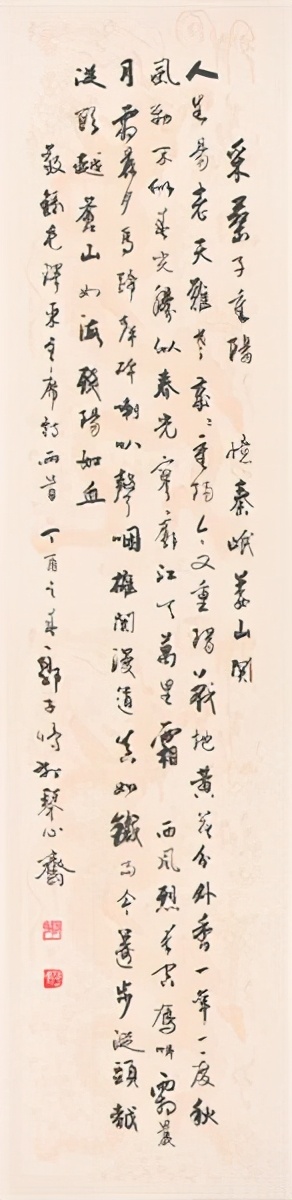 采桑子重陽 憶秦娥婁山關
人生易老天難老歲〻重陽今又重陽戰地黃花分外香一年一度秋
風勁不似春光勝似春光寥廓江天萬里霜 西風烈長空雁叫霜晨
月霜晨月馬蹄聲碎喇叭聲咽雄關漫道真如鐵而今邁步從頭越
從頭越蒼山如海殘陽如血
敬錄毛澤東主席詩兩首 丁酉之春郭子於琴心齋